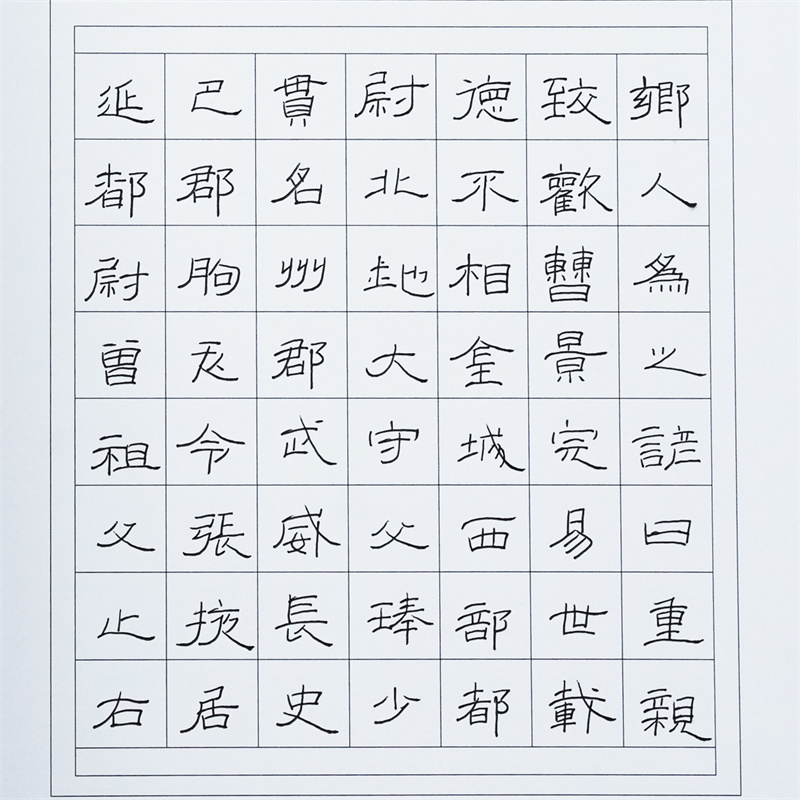 鄉人為之諺曰重親
致歡曹景完易世載
德不相金城西部都
尉北地大守父琫少
貫名州郡武威長史
巴郡朐忍令張掖居
延都尉曾祖父止右